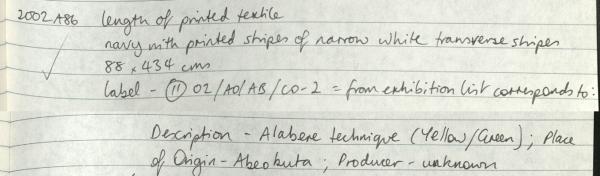 2002.A86 length of printed textile
navy with printed stripes of narrow white transverse stripes
88 x 434 cms
label - (11) 02/A0/AB/CO-2 = from exhibition list corresponds to:
Description - Alabere technique (Yellow/Green); Place
of Origin - Abeokuta; Producer - unknown